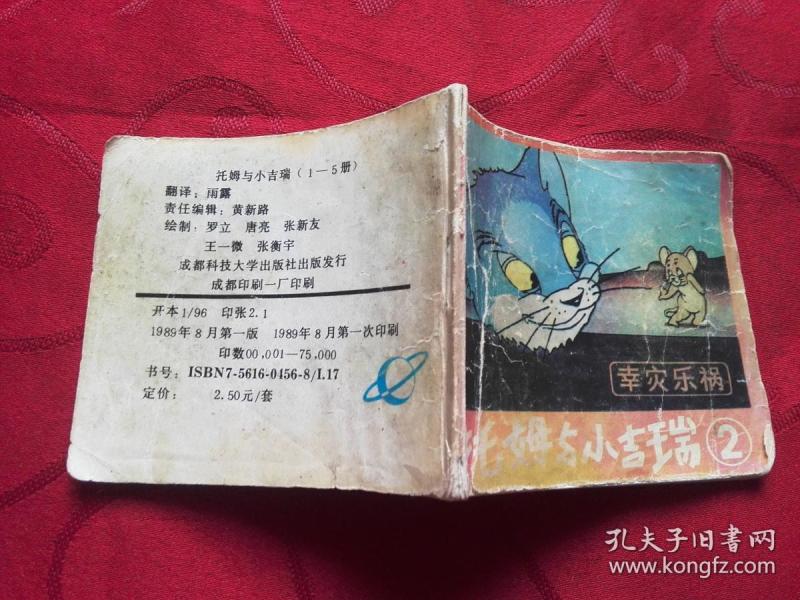 托姆与小吉瑞（1—5册）
翻译：雨露
责任编辑：黄新路
绘制：罗立 唐亮 张新友
王一微 张衡宇
成都科技大学出版社出版发行
成都印刷一厂印刷
开本1/96 印张2.1
1989年8月第一版 1989年8月第一次印刷
印数00,001—75,000
书号：ISBN7-5616-0456-8/I.17
定价： 2.50元/套
幸灾乐祸
托姆与小吉瑞②
孔夫子旧书网
www.kongfz.com